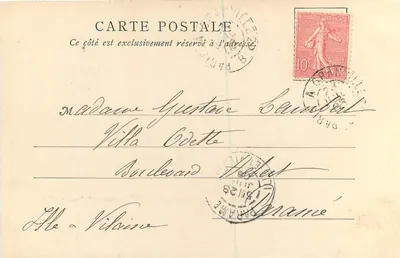 CARTE POSTALE
Ce côté est exclusivement réservé à l'adresse.
10c
Madame Gustave Lambert
Villa Odette
Boulevard Hébert
Paramé
Ille & Vilaine
PARAMÉ